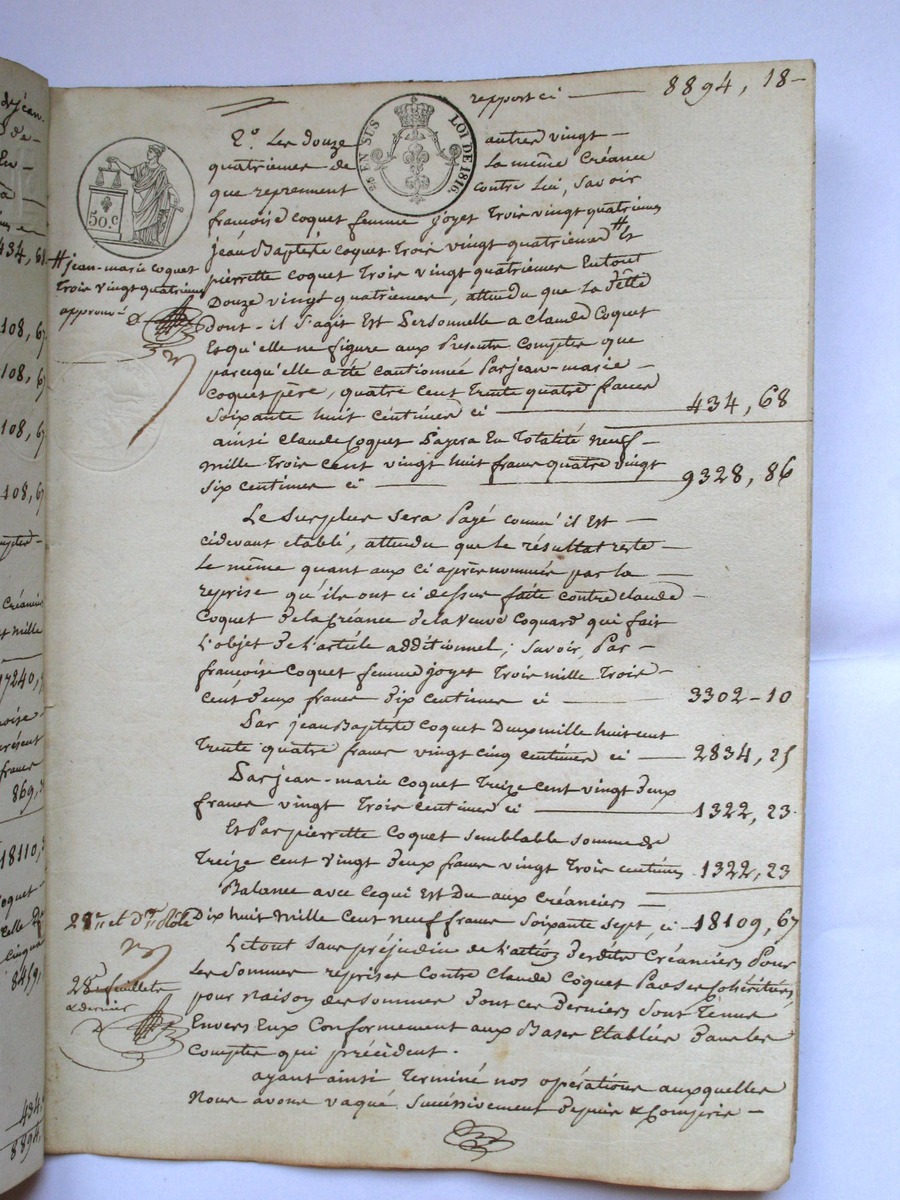 report ci — 8894, 18-
25 EN SUS LOI DE 1816.
50.C
2.° Les douze autres vingt —
quatriemes de la même Créance
que reprennent contre Lui, Savoir
francoise Coquet femme joyet Trois vingt quatriemes
jean Baptiste Coquet Trois vingt quatriemes # Et
pierrette Coquet Trois vingt quatriemes En tout
Douze vingt quatriemes, attendu que La Dette
Dont - il S'agit Est Personnelle a Claude Coquet
Et qu'elle ne figure aux Presents Comptes que
parcequ'elle a été Cautionnée Par jean-marie -
Coquet père, quatre Cent Trente quatre francs
Soixante huit Centimes ci — 434, 68
# jean-marie Coquet
Trois vingt quatriemes
approuvé
ainsi Claude Coquet Payera En Totalité neuf -
Mille Trois Cent vingt huit francs quatre vingt
Six Centimes ci — 9328, 86
Le Surplus Sera Payé comm'il Est —
cidevant établi, attendu que Le résultat reste —
Le même quant aux ci après nommés par La —
reprise qu'ils ont ci dessus faite contre Claude -
Coquet De la Créance De la Veuve Coquard qui fait
L'objet De L'article additionnel; Savoir, Par -
francoise Coquet femme joyet Trois mille Trois -
Cent Deux francs Dix Centimes ci — 3302-10
Par jean Baptiste Coquet Deux mille huit cent
Trente quatre francs vingt cinq Centimes ci — 2834, 25
Par jean-marie Coquet Treize cent vingt Deux
francs vingt Trois Centimes ci — 1322, 23
Et Par pierrette Coquet Semblable Somme de
Treize Cent vingt Deux francs vingt Trois Centimes 1322, 23
Balance avec Ce qui Est Du aux Créanciers —
Dix huit Mille Cent neuf francs Soixante Sept, ci - 18109, 67
Le tout Sans préjudice de L'action Desdits Créanciers Pour
Les Sommes reprises Contre Claude Coquet
pour Raison des Sommes Dont Ces Derniers Sont Tenus
Envers Eux Conformement aux Bases Etablies Dans les
Comptes qui précédent.
28 feuillets
& dernier
ayant ainsi Terminé nos opérations auxquelles
Nous avons vaqué Successivement Depuis & Compris —
434,
8894,